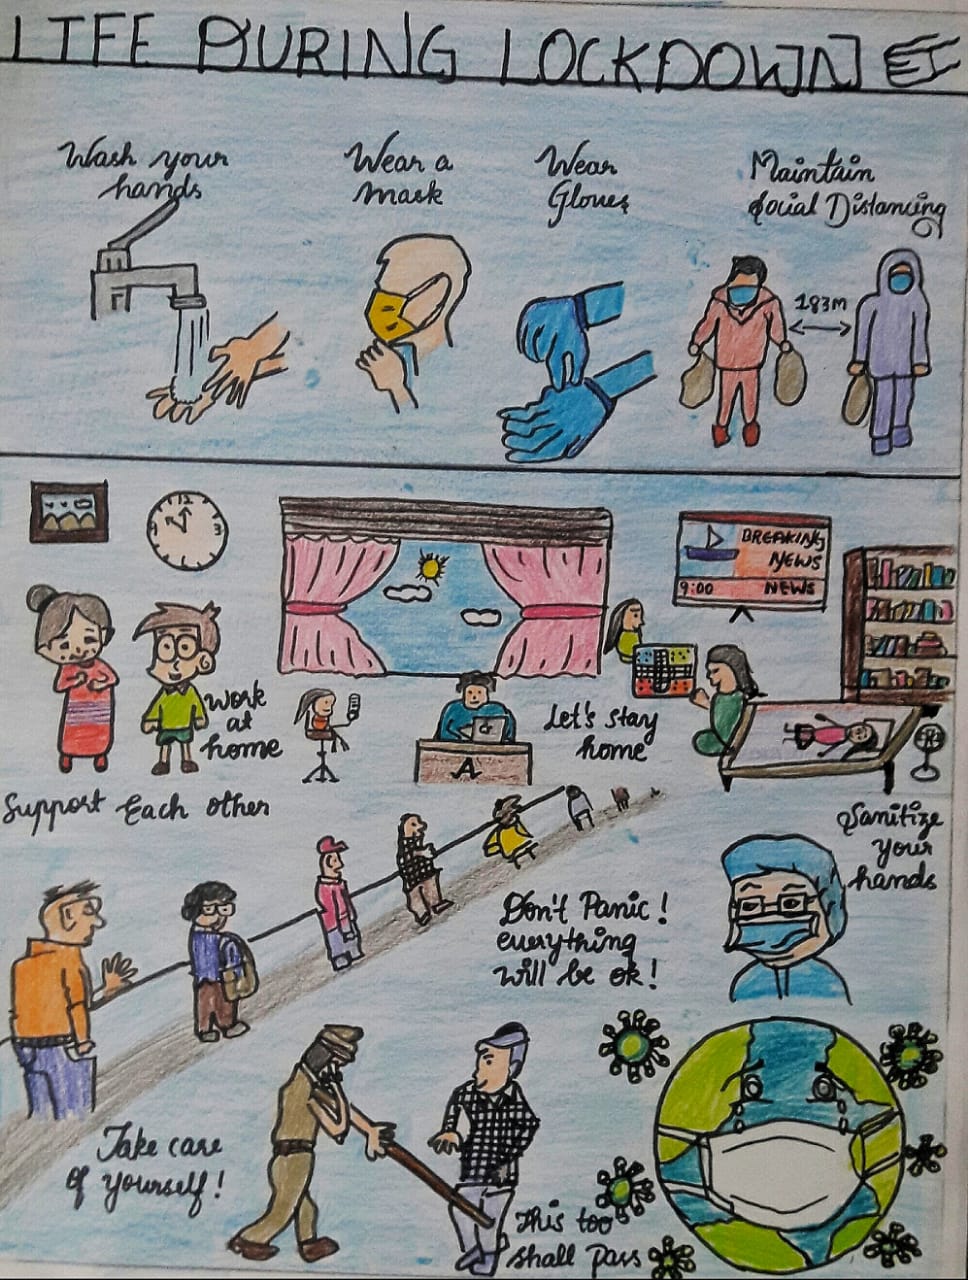 LIFE DURING LOCKDOWN
Wash your
hands
Wear a
mask
Wear
Gloves
Maintain
Social Distancing
183M
12
3
BREAKING
NEWS
9:00 NEWS
Work
at
home
A
Let's stay
home
Support Each other
Sanitize
your
hands
Don't Panic!
everything
will be ok!
Take care
of yourself!
This too
shall pass